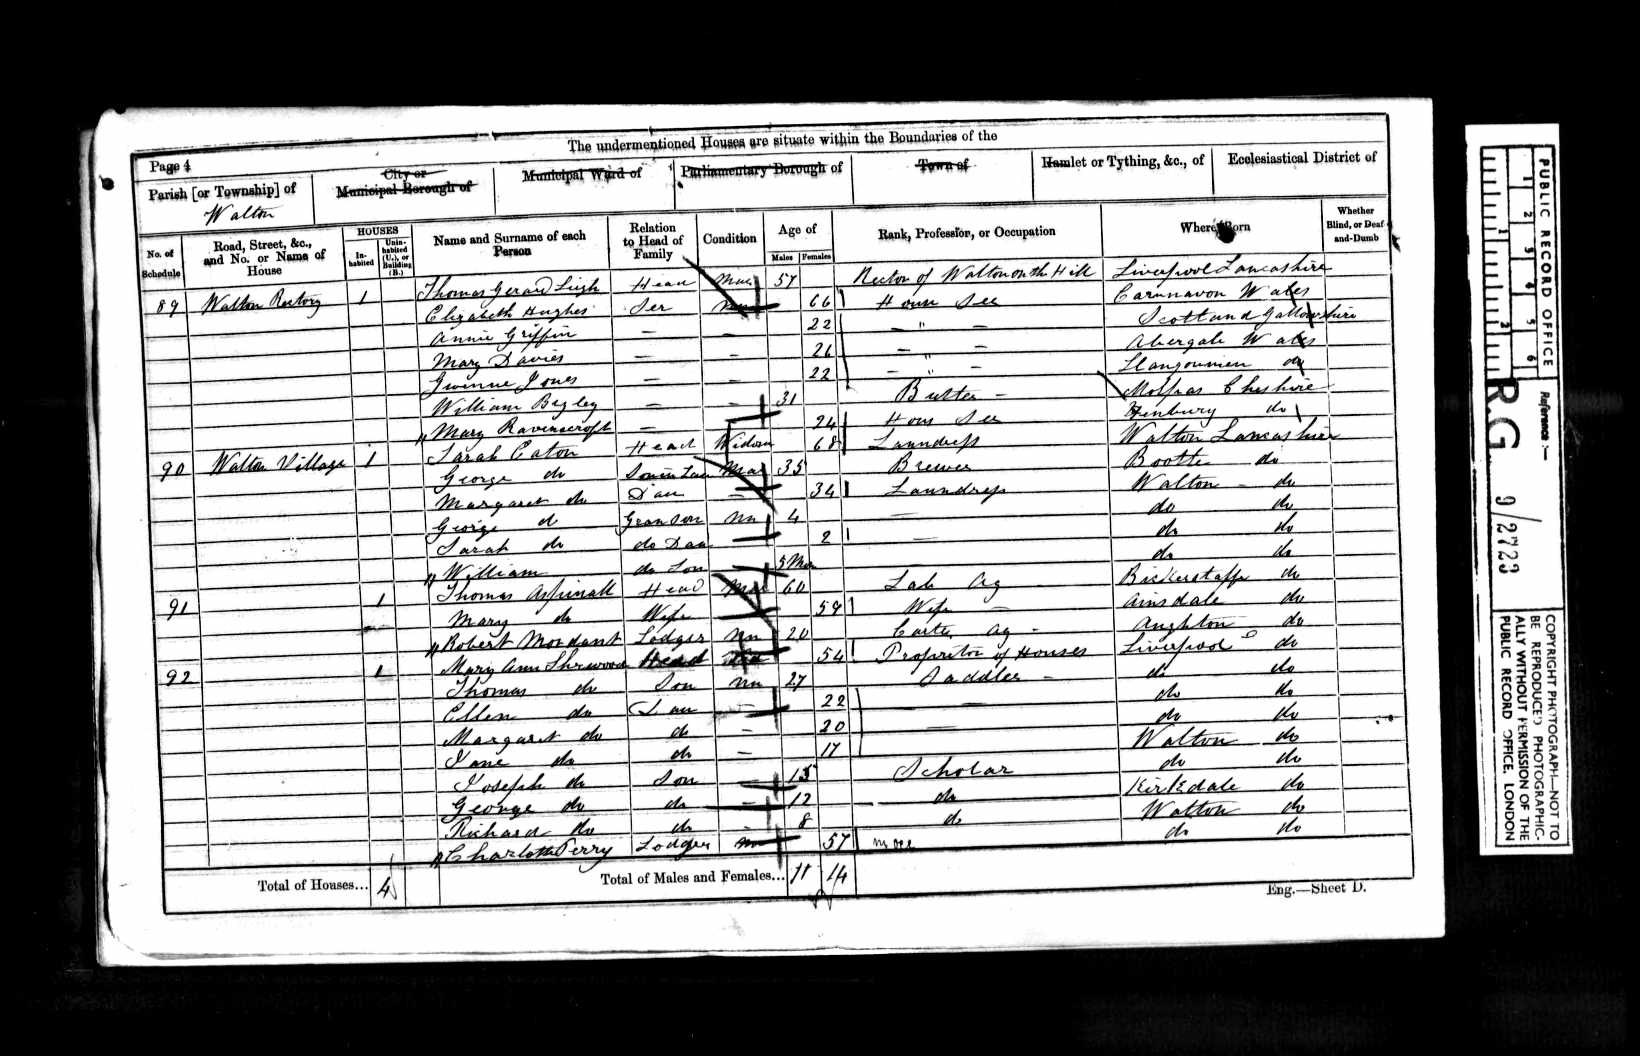 The undermentioned Houses are situate within the Boundaries of the
Page 4
Parish [or Township] of
Walton
City or
Municipal Borough of
Municipal Ward of
Parliamentary Borough of
Town of
Hamlet or Tything, &c., of
Ecclesiastical District of
No. of Schedule
Road, Street, &c., and No. or Name of House
HOUSES
Inhabited
Uninhabited (U.), or Building (B.)
Name and Surname of each Person
Relation to Head of Family
Condition
Age of
Males
Females
Rank, Profession, or Occupation
Where Born
Whether Blind, or Deaf-and-Dumb
89 Walton Rectory 1 Thomas Gerard Leigh Head Mar 57 Rector of Walton on the Hill Liverpool Lancashire
Elizabeth Hughes Ser 66 House Ser Carnnavon Wales
Annie Griffin — — 22 — " — Scotland
Mary Davies — — 26 — " — Abergale Wales
Gwinne Jones — — 22 — " — do
William Bigley — — 31 Butler — Molpas Cheshire
Mary Ravenscroft — 24 House Ser Henbury do
90 Walton Village 1 Sarah Eaton Head Widow 68 Laundress Walton Lancashire
George do Son in Law Mar 35 Brewer Bootle do
Margaret do Dau — 34 Laundress Walton — do
George do Gran Son Un 4 — do do
Sarah do do Dau — 2 — do do
William do Son — 5 Mon do do
91 1 Thomas Aspinall Head Mar 60 Lab Ag Bickerstaffe do
Mary do Wife — 59 Wife — Ainsdale do
Robert Mordant Lodger Un 20 Carter Ag — Aughton do
92 1 Mary Ann Sherwood Head 54 Propritor of Houses Liverpool do
Thomas do Son Un 27 Saddler — do do
Ellen do Dau — 22 — do do
Margaret do do — 20 — do do
Jane do do — 17 Walton do
Joseph do Son — 15 Scholar do do
George do do — 12 do Kirkdale do
Richard do do — 8 do Walton do
Charlotte Perry Lodger 57 do do
Total of Houses... 4
Total of Males and Females... 11 14
Eng.—Sheet D.
PUBLIC RECORD OFFICE
1 2 3 4 5 6
1 2
Reference :—
R.G. 9/2723
COPYRIGHT PHOTOGRAPH—NOT TO
BE REPRODUCED PHOTOGRAPHIC-
ALLY WITHOUT PERMISSION OF THE
PUBLIC RECORD OFFICE, LONDON